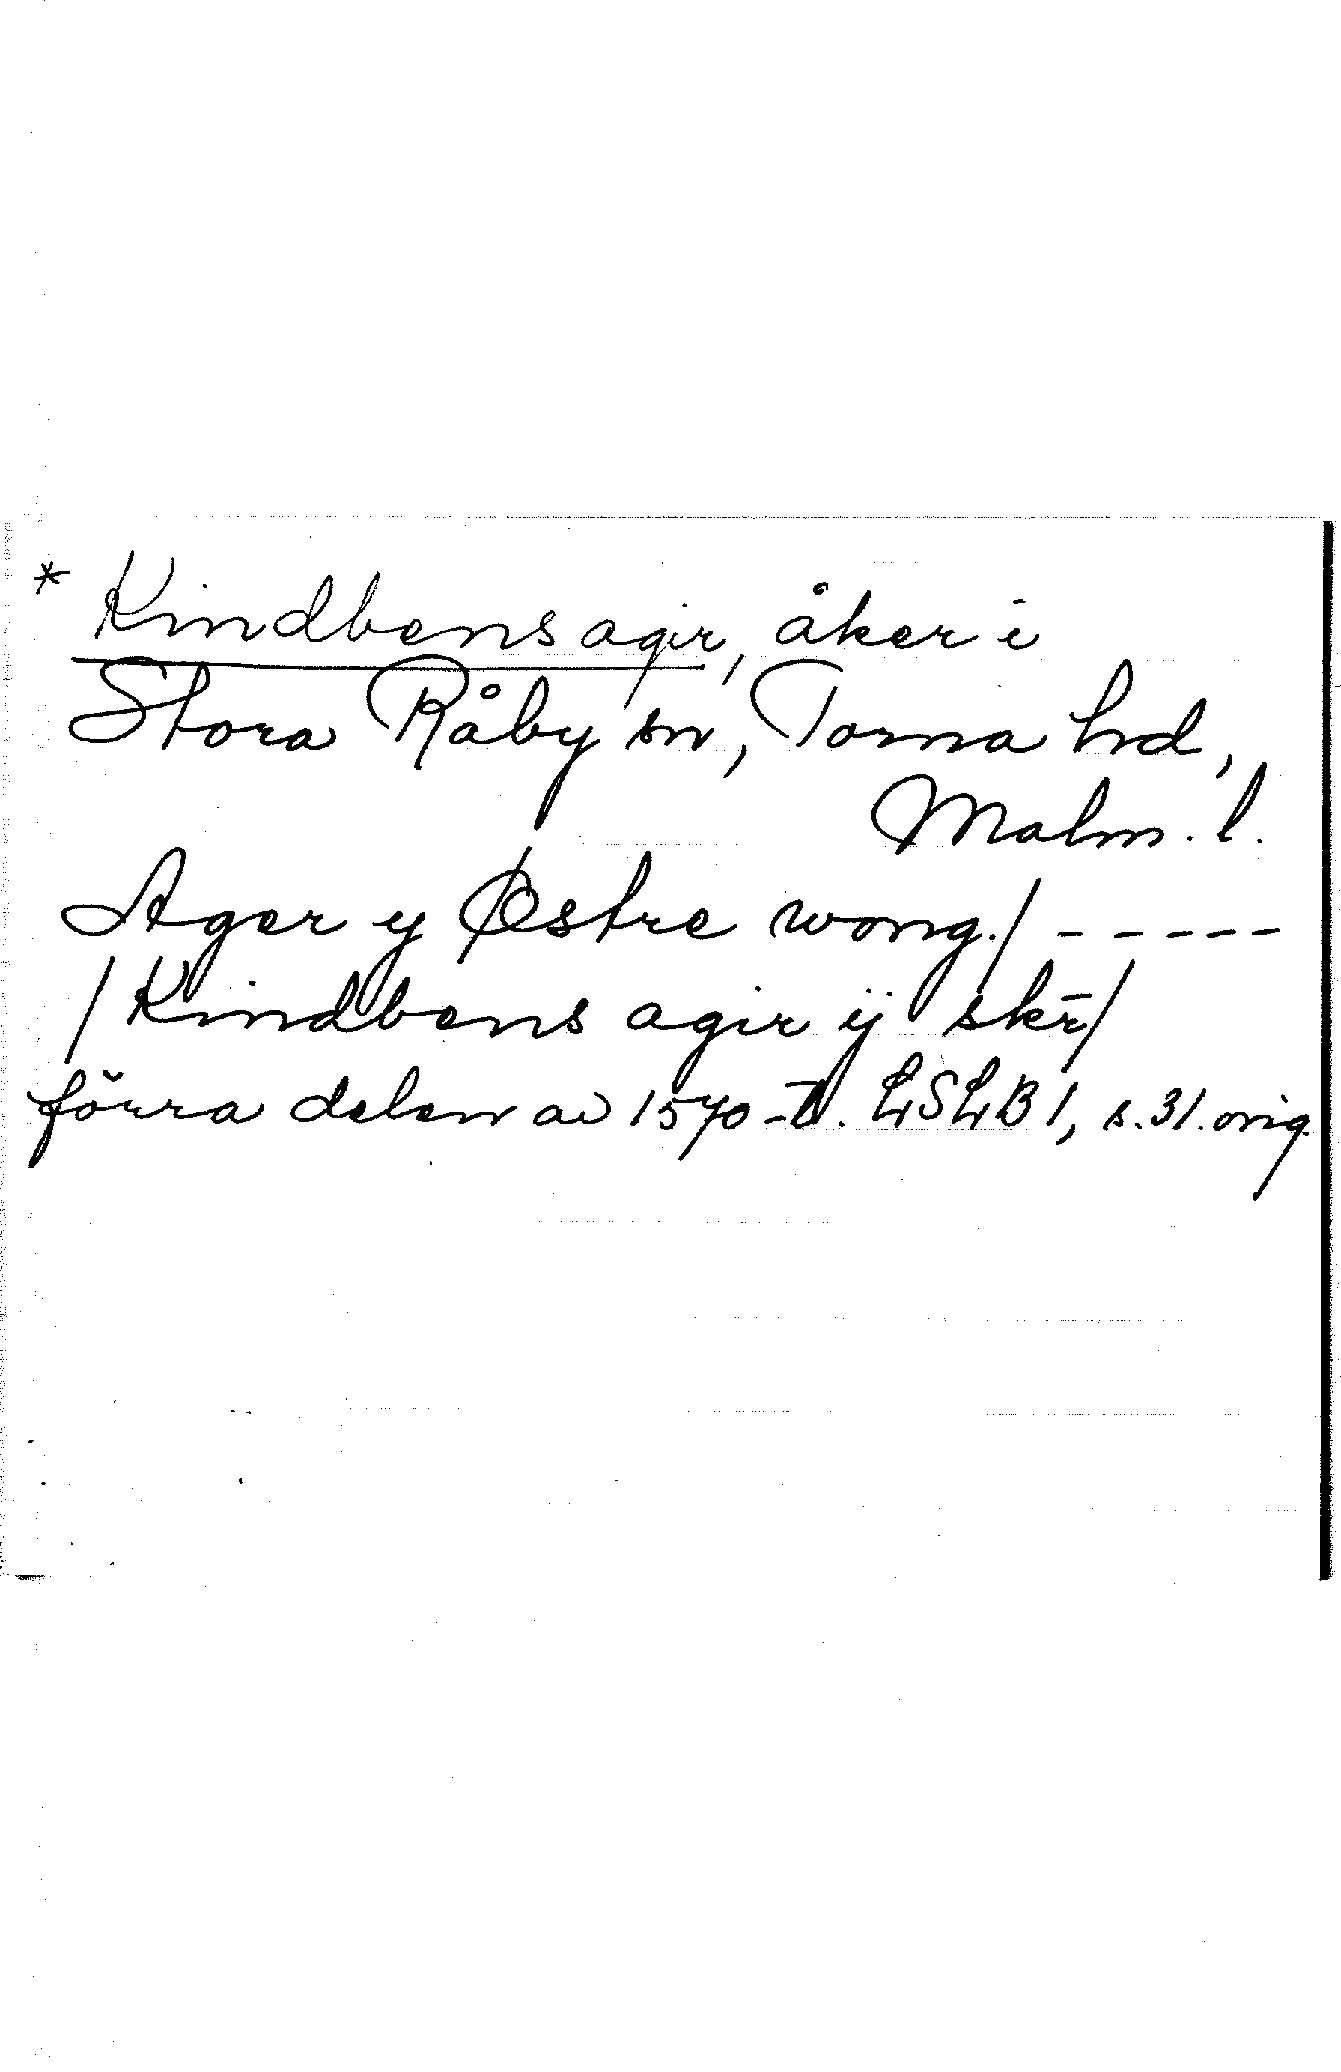 * Kindbens agir, åker i
Stora Råby sn, Torna hd,
Malm. l.
Ager y Østre wong./ - - - - -
/ Kindbens agir ij skr̄/
förra delen av 1570-t. LSLB 1, s. 31. orig.